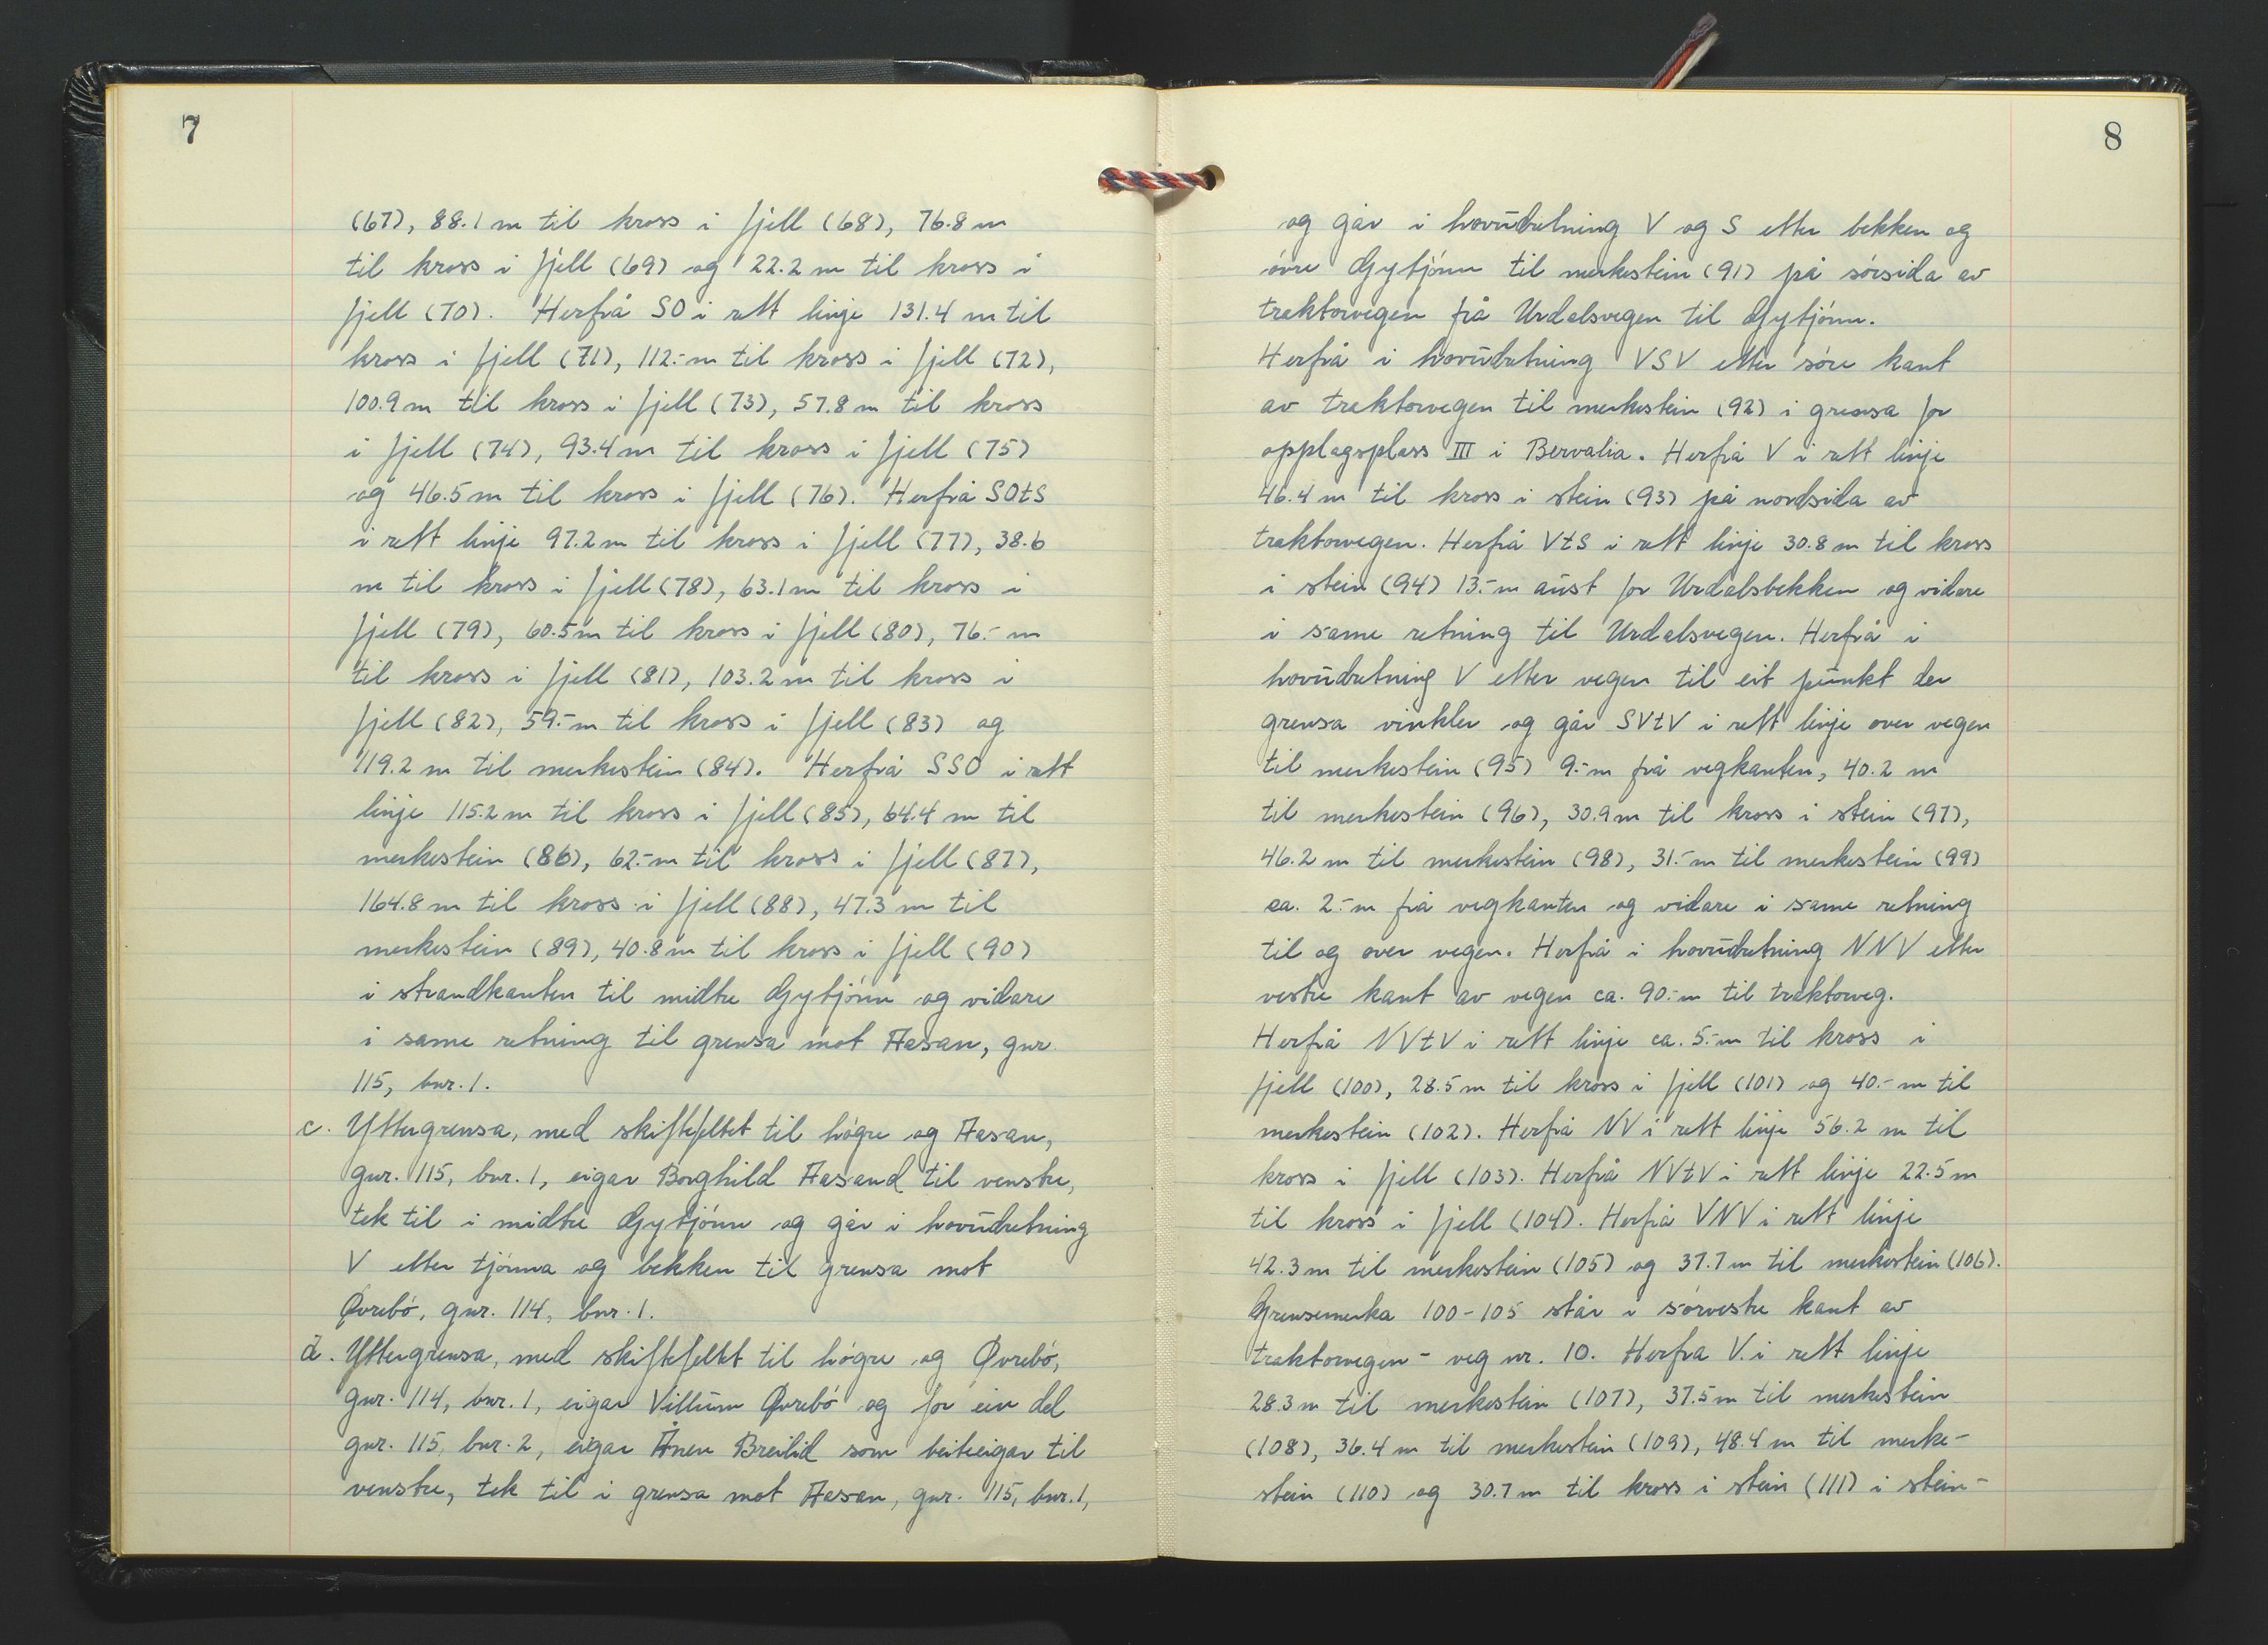 7
(67), 88.1 m til kross i fjell (68), 76.8 m
til kross i fjell (69) og 22.2 m til kross i
fjell (70). Herfrå SO i rett linje 131.4 m til
kross i fjell (71), 112.- m til kross i fjell (72),
100.9 m til kross i fjell (73), 57.8 m til kross
i fjell (74), 93.4 m til kross i fjell (75)
og 46.5 m til kross i fjell (76). Herfrå SOtS
i rett linje 97.2 m til kross i fjell (77), 38.6
m til kross i fjell (78), 63.1 m til kross i
fjell (79), 60.5 m til kross i fjell (80), 76.- m
til kross i fjell (81), 103.2 m til kross i
fjell (82), 59.- m til kross i fjell (83) og
119.2 m til merkestein (84). Herfrå SSO i rett
linje 115.2 m til kross i fjell (85), 64.4 m til
merkestein (86), 62.- m til kross i fjell (87),
164.8 m til kross i fjell (88), 47.3 m til
merkestein (89), 40.8 m til kross i fjell (90)
i strandkanten til midtre Gytjónn og vidare
i same retning til grensa mot Aasan, gnr.
115, bnr. 1.
c. Yttergrensa, med skiftefeltet til högre og Aasan,
gnr. 115, bnr. 1, eigar Borghild Aasand til venstre,
tek til i midtre Gytjónn og går i hovudretning
V etter tjónna og bekken til grensa mot
Øvrebó, gnr. 114, bnr. 1.
d. Yttergrensa, med skiftefeltet til högre og Øvrebó,
gnr. 114, bnr. 1, eigar Villum Øvrebó og for ein del
gnr. 115, bnr. 2, eigar Ånen Breilid som beiteeigar til
venstre, tek til i grensa mot Aasan, gnr. 115, bnr. 1,
8
og går i hovudretning V og S etter bekken og
óvre Gytjónn til merkestein (91) på sórsida av
traktorvegen frå Urdalsvegen til Gytjónn.
Herfrå i hovudretning VSV etter sóre kant
av traktorvegen til merkestein (92) i grensa for
opplagsplass III i Bervalia. Herfrå V i rett linje
46.4 m til kross i stein (93) på nordsida av
traktorvegen. Herfrå VtS i rett linje 30.8 m til kross
i stein (94) 13.- m aust for Urdalsbekken og vidare
i same retning til Urdalsvegen. Herfrå i
hovudretning V etter vegen til eit punkt der
grensa vinkler og går SVtV i rett linje over vegen
til merkestein (95) 9.- m frå vegkanten, 40.2 m
til merkestein (96), 30.9 m til kross i stein (97),
46.2 m til merkestein (98), 31.- m til merkestein (99)
ca. 2.- m frå vegkanten og vidare i same retning
til og over vegen. Herfrå i hovudretning NNV etter
vestre kant av vegen ca. 90.- m til traktorveg.
Herfrå NVtV i rett linje ca. 5.- m til kross i
fjell (100), 28.5 m til kross i fjell (101) og 40.- m til
merkestein (102). Herfrå NV i rett linje 56.2 m til
kross i fjell (103). Herfrå NVtV i rett linje 22.5 m
til kross i fjell (104). Herfrå VNV i rett linje
42.3 m til merkestein (105) og 37.7 m til merkestein (106).
Grensemerka 100-105 står i sórvestre kant av
traktorvegen - veg nr. 10. Herfra V. i rett linje
28.3 m til merkestein (107), 37.5 m til merkestein
(108), 36.4 m til merkestein (109), 48.4 m til merke-
stein (110) og 30.7 m til kross i stein (111) i stein-